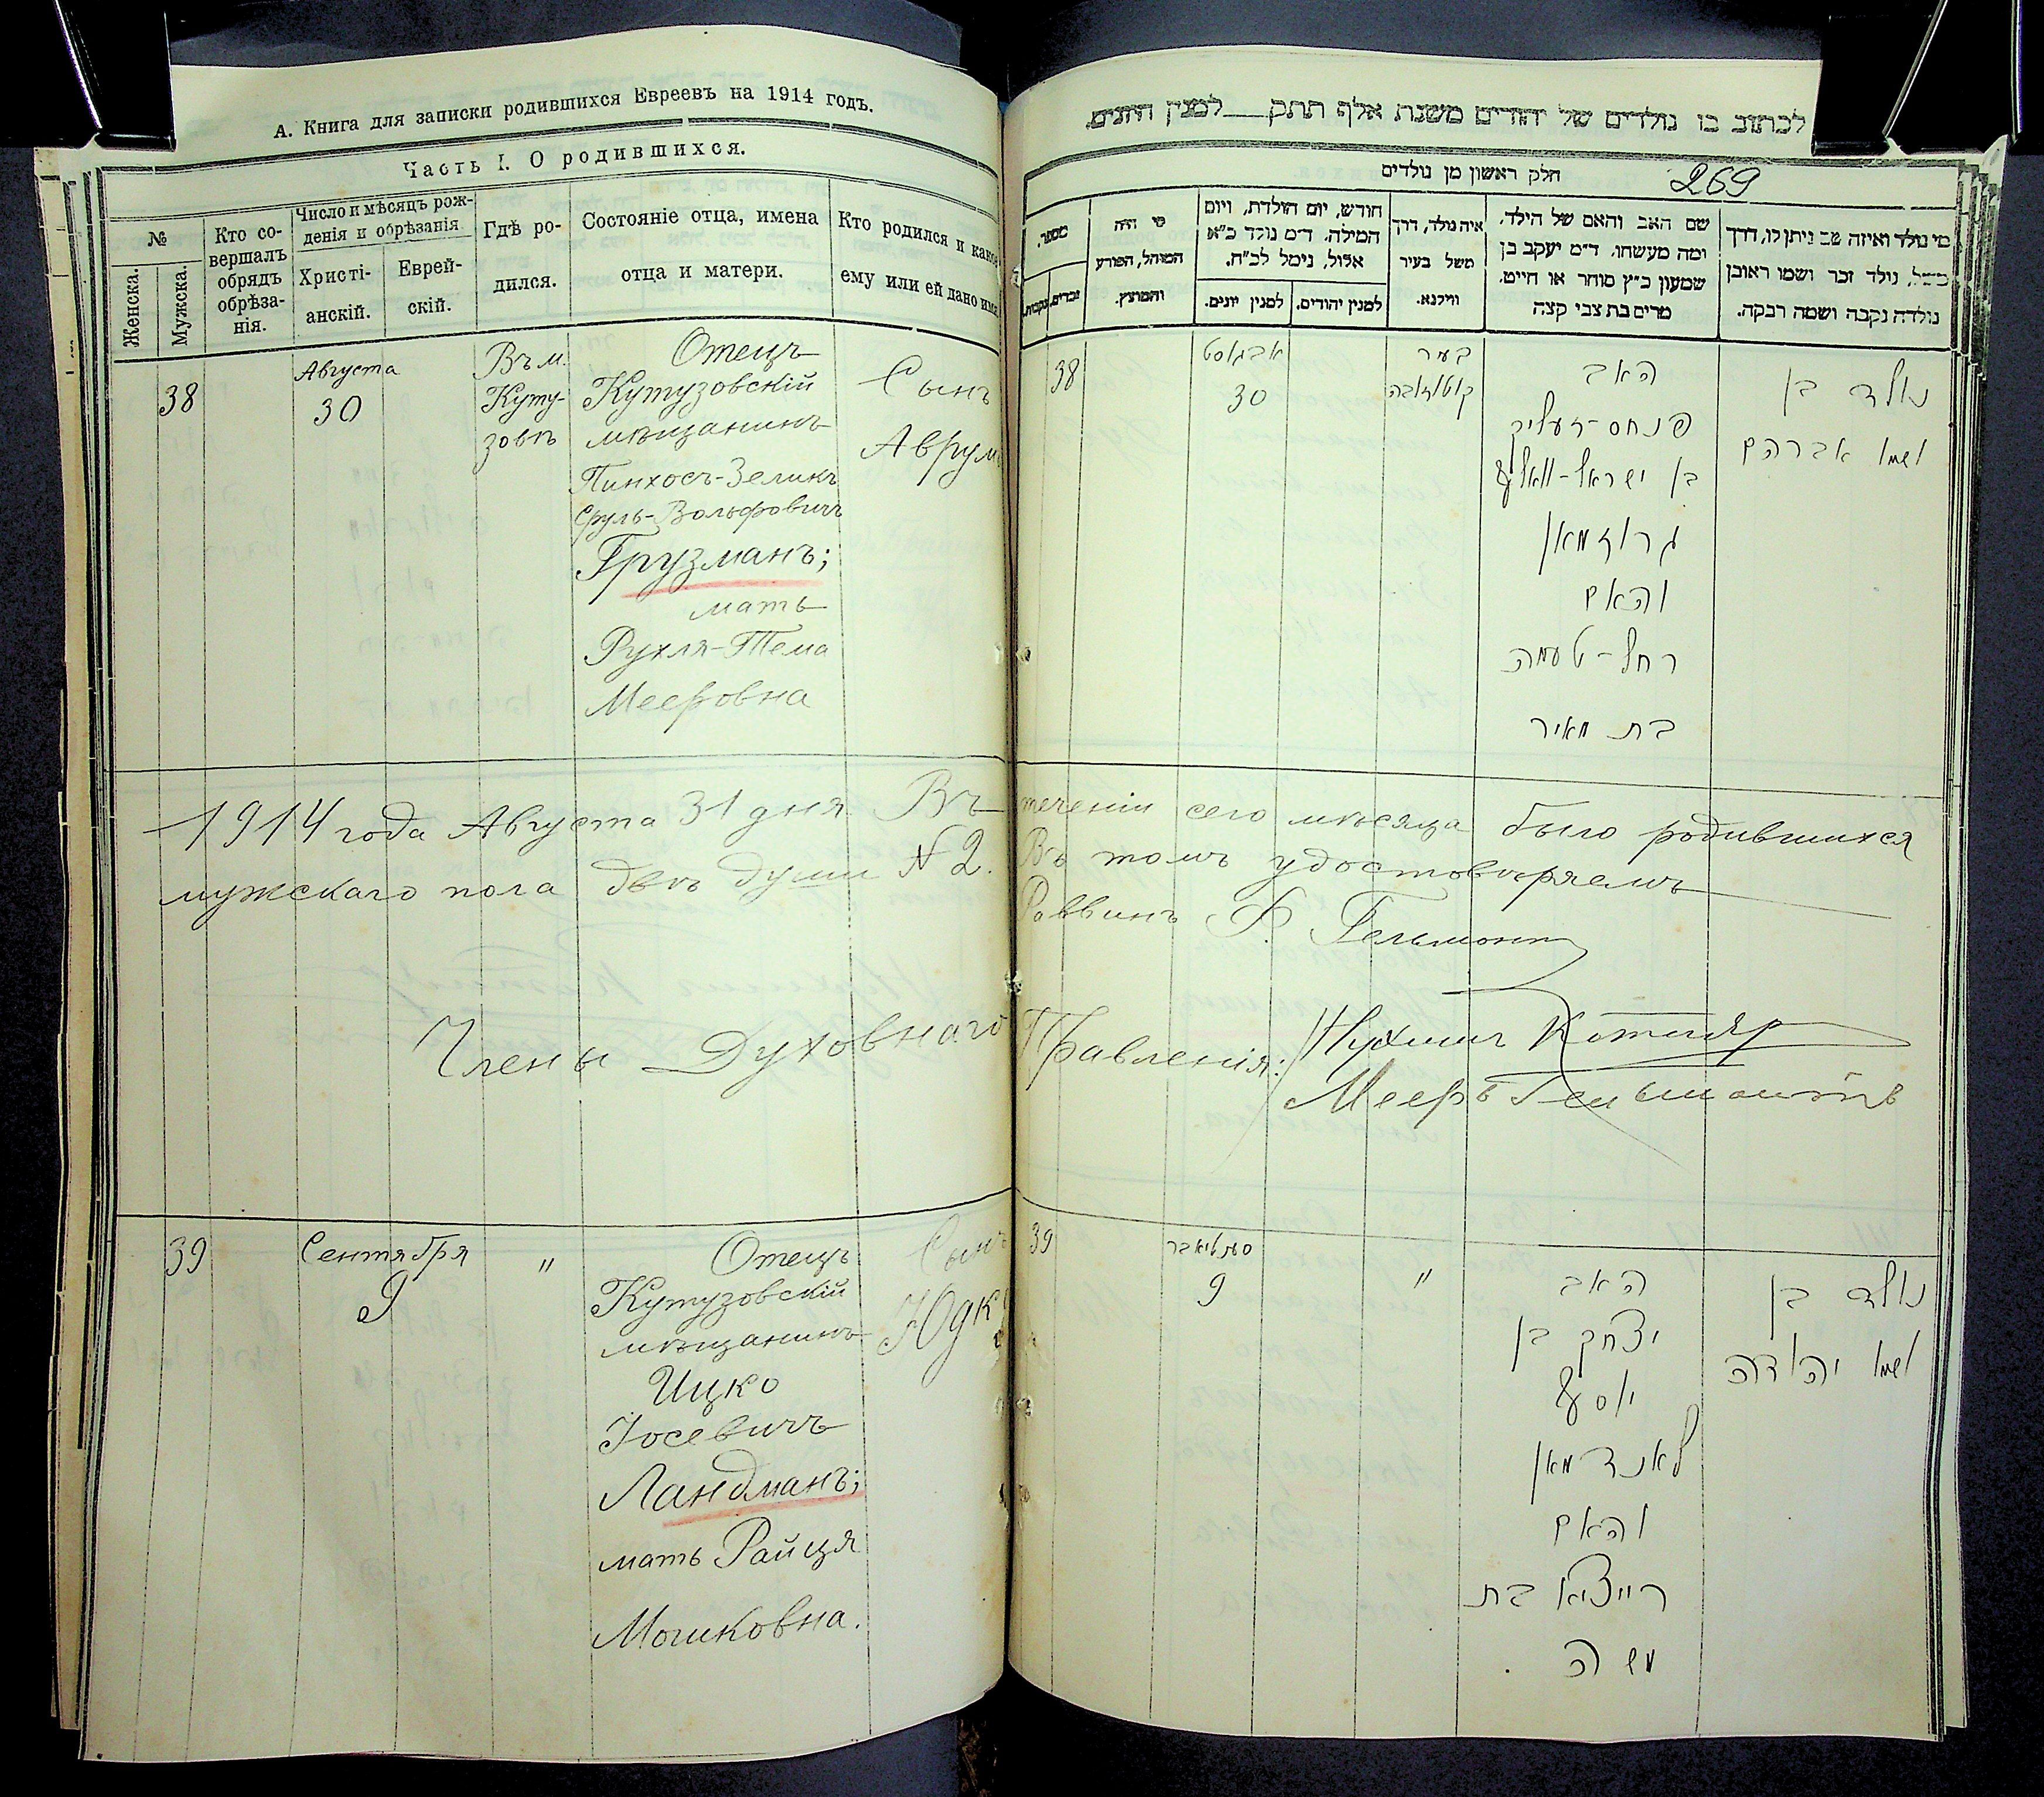 А. Книга для записки родившихся Евреевъ на 1914 годъ.
Часть I. О родившихся.
№
Женска.
Мужска.
Кто со-
вершалъ
обрядъ
обрѣза-
нія.
Число и мѣсяцъ рож-
денія и обрѣзанія
Христі-
анскій.
Еврей-
скій.
Гдѣ ро-
дился.
Состояніе отца, имена
отца и матери.
Кто родился и какое
ему или ей дано имя
38
Августа
30
Въ м.
Куту-
зовѣ
Отецъ
Кутузовскій
мѣщанинъ
Пинхосъ-Зеликъ
Сруль-Вольфовичъ
Грузманъ;
мать
Рухля-Тема
Мееровна
Сынъ
Аврумъ
לכתוב בו נולדים של יהודים משנת אלף תתק למנין היונים
חלק ראשון מן נולדים
269
מספר.
זכרים.
נקבות.
מי היה
המוהל, הפורע
והמוצץ.
חודש, יום הולדת, ויום
המילה. ד"מ נולד כ"א
אלול, נימל לכ"ח.
למנין יונים.
למנין יהודים.
איה נולד, דרך
משל בעיר
ווילנא.
שם האב והאם של הילד,
ומה מעשהו. ד"מ יעקב בן
שמעון כ"ץ סוחר או חייט.
מרים בת צבי קצה
מי נולד ואיזה שם ניתן לו, דרך
משל, נולד זכר ושמו ראובן
נולדה נקבה ושמה רבקה.
38
אבגוסט
30
בעיר
קוטוזובה
האב
פנחס-זעליק
בן ישראל-וואלף
גרוזמאן
והאם
רחל-טעמה
בת מאיר
נולד בן
ושמו אברהם
1914 года Августа 31 дня Въ теченіи сего мѣсяца было родившихся
мужскаго пола двѣ души № 2. Въ томъ удостовѣряемъ
Раввинъ Гельмонтъ
Члены Духовнаго Правленія: Нухимъ Котляр
Мееръ Гельмонтъ
39
Сентября
9
"
Отецъ
Кутузовскій
мѣщанинъ
Ицко
Іосевичъ
Ландманъ;
мать Райця
Мошковна.
Сынъ
Юдко
39
סעפטיאבר
9
"
האב
יצחק בן
יוסף
לאנדמאן
והאם
רייציא בת
משה
נולד בן
ושמו יהודה